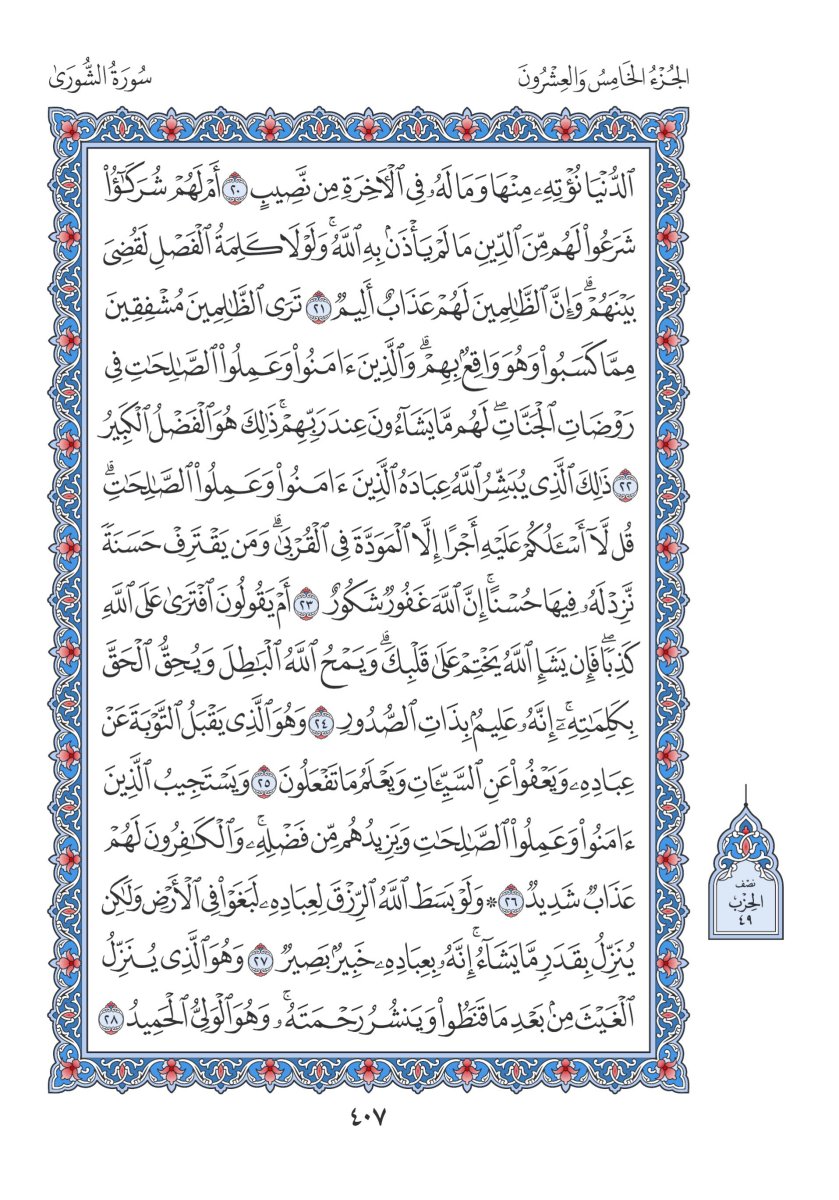 الجُزْءُ الخَامِسُ وَالعِشْرُونَ
سُورَةُ الشُّورَىٰ
ٱلدُّنْيَا نُؤْتِهِۦ مِنْهَا وَمَا لَهُۥ فِى ٱلْأَخِرَةِ مِن نَّصِيبٍ ٢٠ أَمْ لَهُمْ شُرَكَـٰٓؤُا۟
شَرَعُوا۟ لَهُم مِّنَ ٱلدِّينِ مَا لَمْ يَأْذَنۢ بِهِ ٱللَّهُ ۚ وَلَوْلَا كَلِمَةُ ٱلْفَصْلِ لَقُضِىَ
بَيْنَهُمْ ۗ وَإِنَّ ٱلظَّـٰلِمِينَ لَهُمْ عَذَابٌ أَلِيمٌ ٢١ تَرَى ٱلظَّـٰلِمِينَ مُشْفِقِينَ
مِمَّا كَسَبُوا۟ وَهُوَ وَاقِعٌۢ بِهِمْ ۗ وَٱلَّذِينَ ءَامَنُوا۟ وَعَمِلُوا۟ ٱلصَّـٰلِحَـٰتِ فِى
رَوْضَاتِ ٱلْجَنَّاتِ ۖ لَهُم مَّا يَشَآءُونَ عِندَ رَبِّهِمْ ۚ ذَٰلِكَ هُوَ ٱلْفَضْلُ ٱلْكَبِيرُ
٢٢ ذَٰلِكَ ٱلَّذِى يُبَشِّرُ ٱللَّهُ عِبَادَهُ ٱلَّذِينَ ءَامَنُوا۟ وَعَمِلُوا۟ ٱلصَّـٰلِحَـٰتِ ۗ
قُل لَّآ أَسْـَٔلُكُمْ عَلَيْهِ أَجْرًا إِلَّا ٱلْمَوَدَّةَ فِى ٱلْقُرْبَىٰ ۗ وَمَن يَقْتَرِفْ حَسَنَةً
نَّزِدْ لَهُۥ فِيهَا حُسْنًا ۚ إِنَّ ٱللَّهَ غَفُورٌ شَكُورٌ ٢٣ أَمْ يَقُولُونَ ٱفْتَرَىٰ عَلَى ٱللَّهِ
كَذِبًا ۖ فَإِن يَشَإِ ٱللَّهُ يَخْتِمْ عَلَىٰ قَلْبِكَ ۗ وَيَمْحُ ٱللَّهُ ٱلْبَـٰطِلَ وَيُحِقُّ ٱلْحَقَّ
بِكَلِمَـٰتِهِۦٓ ۚ إِنَّهُۥ عَلِيمٌۢ بِذَاتِ ٱلصُّدُورِ ٢٤ وَهُوَ ٱلَّذِى يَقْبَلُ ٱلتَّوْبَةَ عَنْ
عِبَادِهِۦ وَيَعْفُوا۟ عَنِ ٱلسَّيِّـَٔاتِ وَيَعْلَمُ مَا تَفْعَلُونَ ٢٥ وَيَسْتَجِيبُ ٱلَّذِينَ
ءَامَنُوا۟ وَعَمِلُوا۟ ٱلصَّـٰلِحَـٰتِ وَيَزِيدُهُم مِّن فَضْلِهِۦ ۚ وَٱلْكَـٰفِرُونَ لَهُمْ
عَذَابٌ شَدِيدٌ ٢٦ * وَلَوْ بَسَطَ ٱللَّهُ ٱلرِّزْقَ لِعِبَادِهِۦ لَبَغَوْا۟ فِى ٱلْأَرْضِ وَلَـٰكِن
يُنَزِّلُ بِقَدَرٍ مَّا يَشَآءُ ۚ إِنَّهُۥ بِعِبَادِهِۦ خَبِيرٌۢ بَصِيرٌ ٢٧ وَهُوَ ٱلَّذِى يُنَزِّلُ
ٱلْغَيْثَ مِنۢ بَعْدِ مَا قَنَطُوا۟ وَيَنشُرُ رَحْمَتَهُۥ ۚ وَهُوَ ٱلْوَلِىُّ ٱلْحَمِيدُ ٢٨
نصف
الحزب
٤٩
٤٠٧